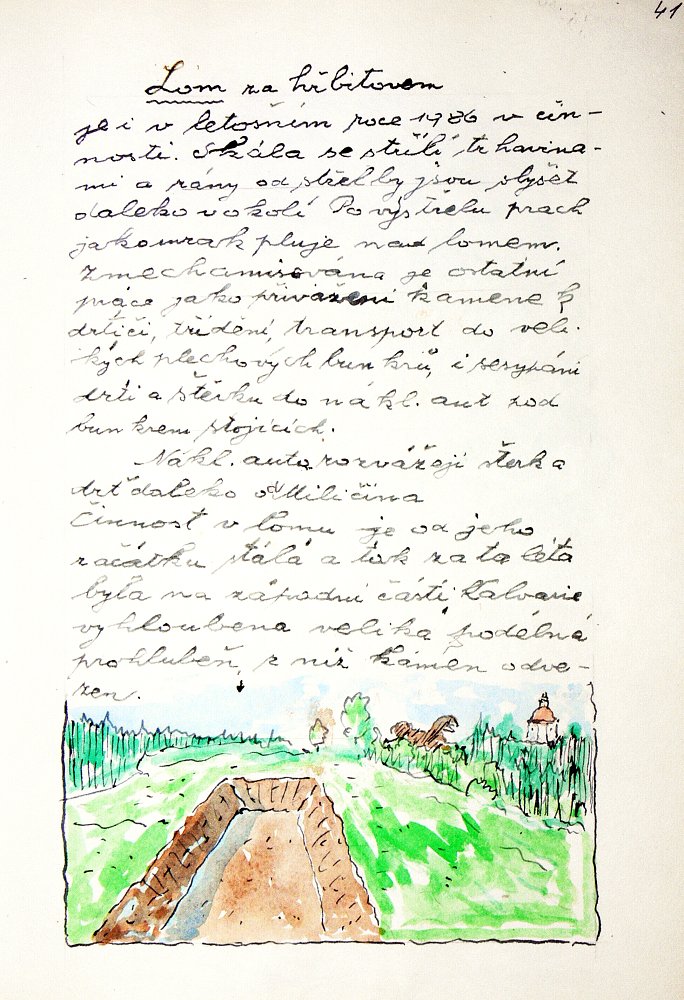 41
Lom za hřbitovem
je i v letošním roce 1986 v čin-
nosti. Skála se střílí trhavina-
mi a rány od střelby jsou slyšet
daleko v okolí Po výstřelu prach
jako mrak pluje nad lomem.
Zmechanisována je ostatní
práce jako přivážení kamene k
drtiči, třídění, transport do vel-
kých plechových bunkrů, i sesypání
drti a štěrku do nákl. aut pod
bunkrem stojících.
Nákl. auta rozvážejí štěrk a
drť daleko od Miličína
Činnost v lomu je od jeho
začátku stálá a tak za ta léta
byla na západní části Kalvarie
vyhloubena veliká podélná
prohlubeň, z níž kámen odve-
zen.